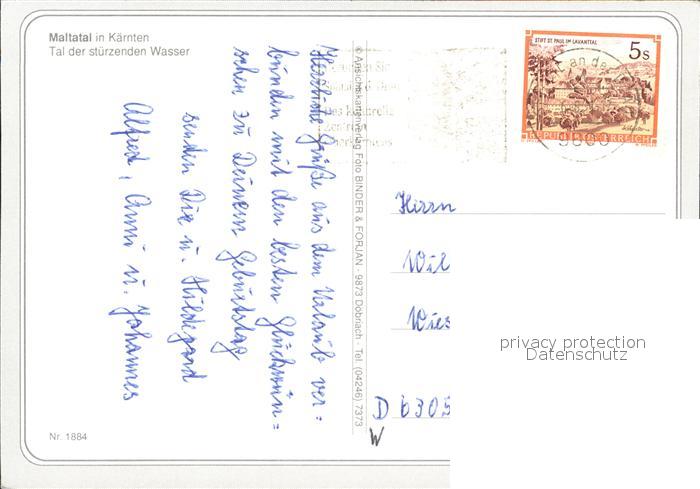 Maltatal in Kärnten
Tal der stürzenden Wasser
Herzliche Grüße aus dem Urlaub ver=
bunden mit den besten Glückwün=
schen zu Deinem Geburtstag
senden Dir u. Hildegard
Alfred, Anni u. Johannes
Nr. 1884
© Ansichtskartenverlag Foto BINDER & FORJAN - 9873 Döbriach - Tel. (04246) 7373
STIFT ST. PAUL IM LAVANTTAL
5s
REPUBLIK ÖSTERREICH
Herrn
Wil
Wies
D 6305
W
privacy protection
Datenschutz